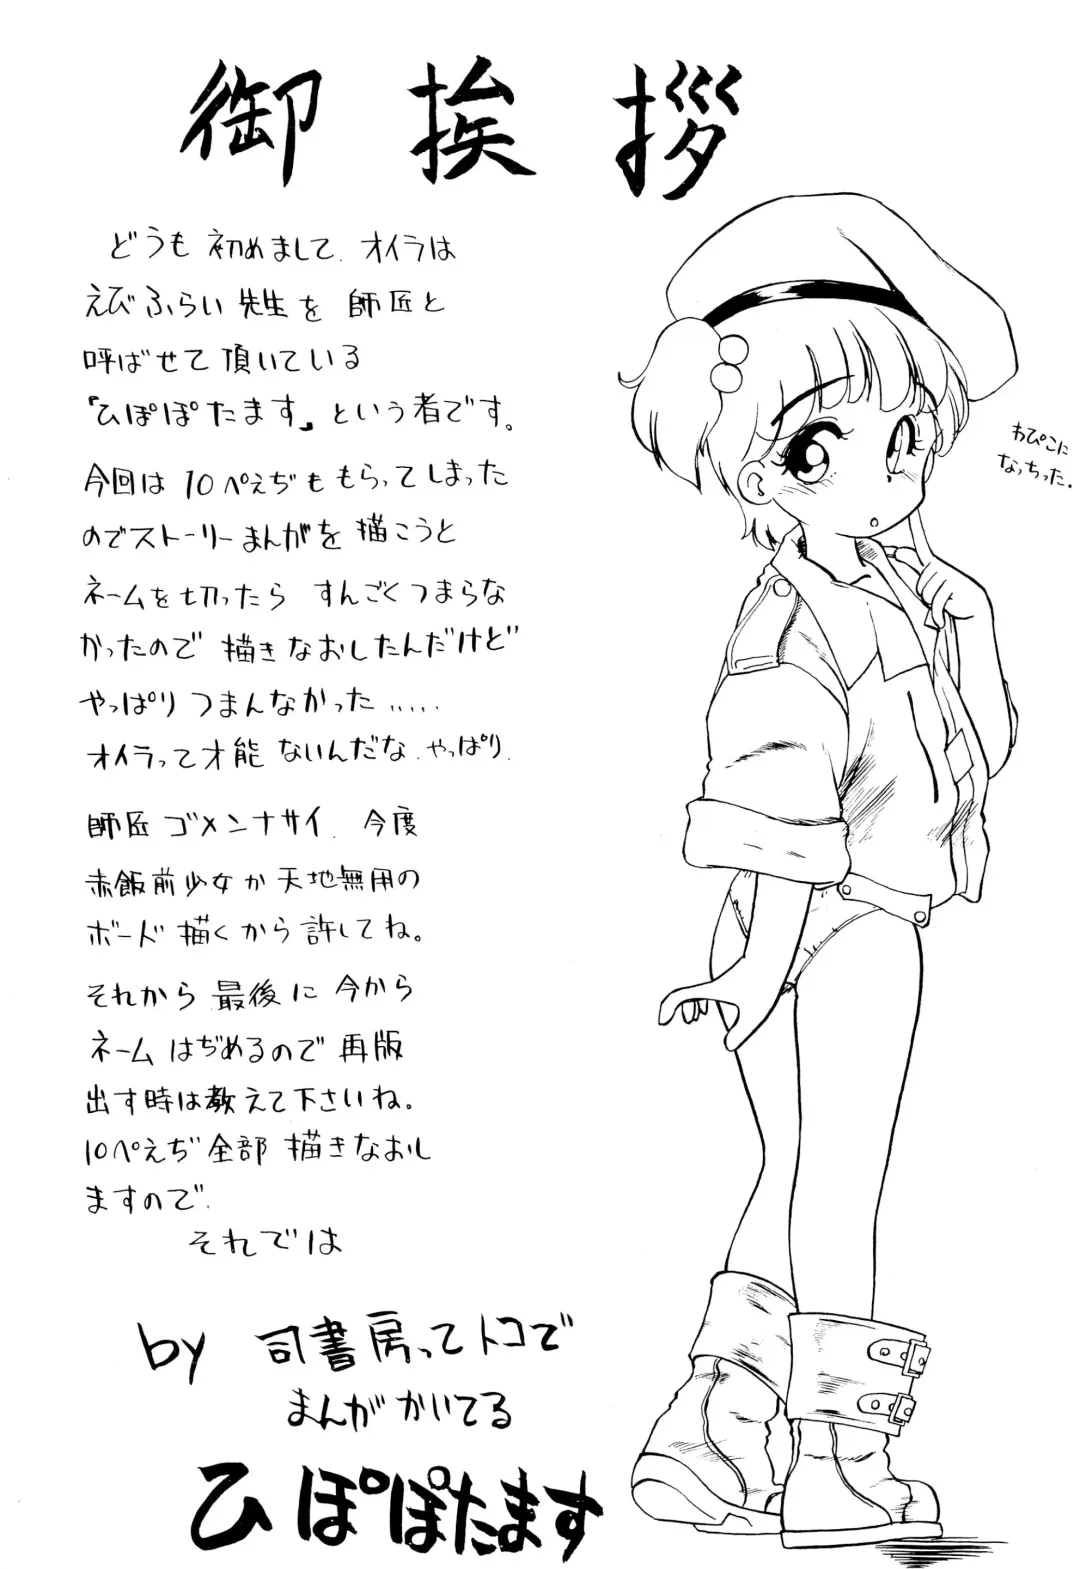 御挨拶
どうも初めまして．オイラは
えびふらい先生を師匠と
呼ばせて頂いている
「ひぽぽたます」という者です。
今回は10ぺえぢももらってしまった
のでストーリーまんがを描こうと
ネームを切ったら すんごくつまらな
かったので描きなおしたんだけど
やっぱりつまんなかった．．．．．
オイラって才能ないんだな．やっぱり．
師匠ゴメンナサイ．今度
赤飯前少女か天地無用の
ボード描くから許してね。
それから最後に今から
ネームはぢめるので再版
出す時は教えて下さいね。
10ぺえぢ全部描きなおし
ますので．
それでは
by 司書房ってトコで
まんがかいてる
ひぽぽたます
わぴこに
なっちった．